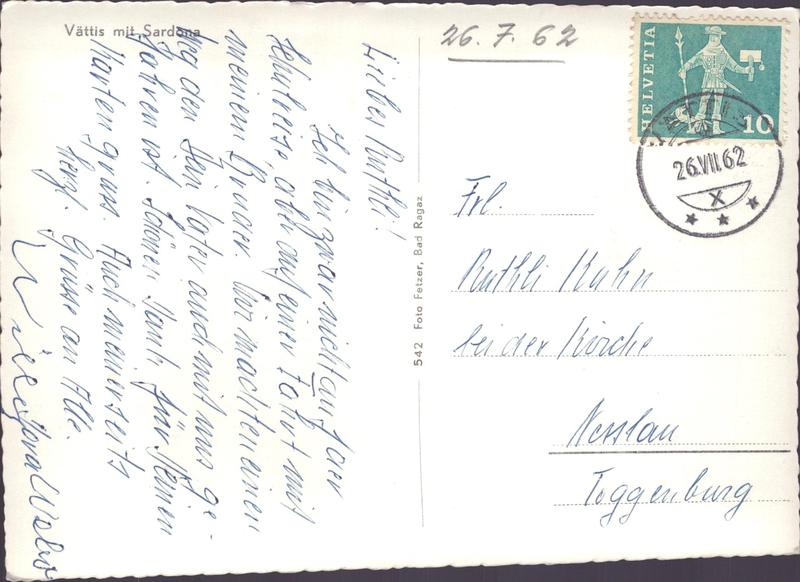 Vättis mit Sardona
26.7.62
HELVETIA
10
VÄTTIS
26.VII.62
X
Liebes Ruthli!
Ich bin zwar nicht auf der
Schulreise, aber auf einer Fahrt mit
meinem Bruder. Wir machten einen
Weg den Dein Vater auch mit uns ge-
fahren ist. Schönen Dank für Deinen
Kartengruss. Auch meinerseits
herzl. Grüsse an Alle.
542 Foto Fetzer, Bad Ragaz
Frl.
Ruthli Kuhn
bei der Kirche
Nesslau
Toggenburg